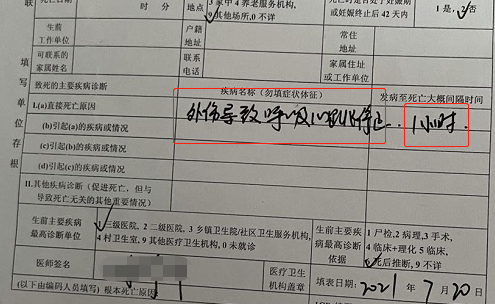 死亡日期
时 分
地点
3家中 4养老服务机构,
9其他场所, 0不详
或妊娠终止后42天内
1是, 2否
联
生前
工作单位
户籍
地址
常住
地址
可联系的
家属姓名
联系
电话
家属住址
或工作单位
填写单位存根
致死的主要疾病诊断
疾病名称(勿填症状体征)
发病至死亡大概间隔时间
I.(a)直接死亡原因
外伤导致呼吸心跳停止
1小时.
(b)引起(a)的疾病或情况
(c)引起(b)的疾病或情况
(d)引起(c)的疾病或情况
II.其他疾病诊断(促进死亡,但与
导致死亡无关的其他重要情况)
生前主要疾病
最高诊断单位
三级医院, 2 二级医院, 3 乡镇卫生院/社区卫生服务机构,
4 村卫生室, 9 其他医疗卫生机构, 0 未就诊
生前主要疾
病最高诊断
依据
1 尸检, 2 病理, 3 手术,
4 临床+理化 5 临床,
死后推断, 9 不详
医师签名
医疗卫生
机构盖章
填表日期: 2021 年 7 月 20 日
(以下由编码人员填写) 根本死亡原因